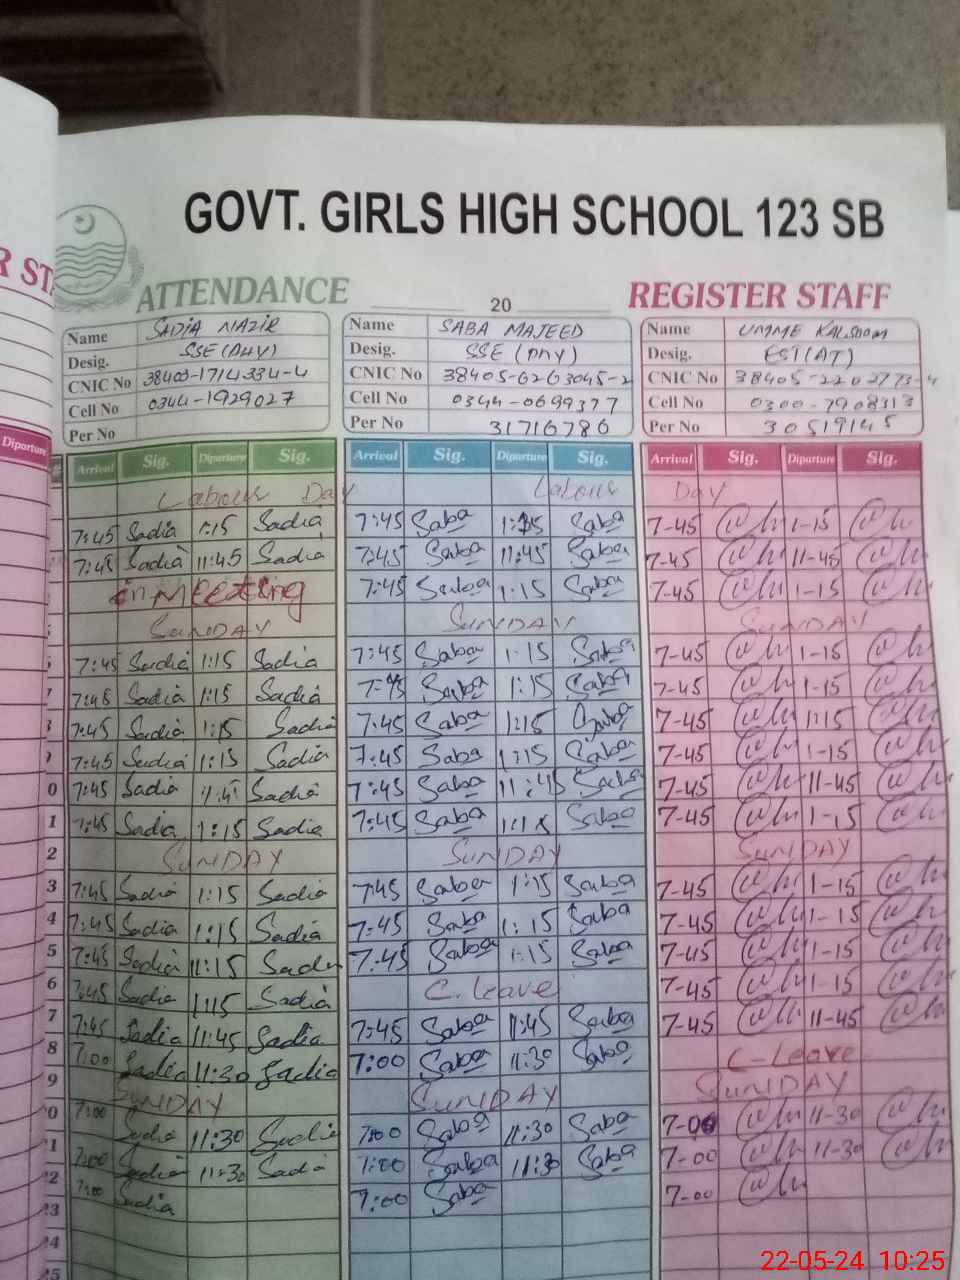 GOVT. GIRLS HIGH SCHOOL 123 SB
R STA
ATTENDANCE 20 REGISTER STAFF
Name SADIA NAZIR Name SABA MAJEED Name UMME KALSOOM
Desig. SSE (PHY) Desig. SSE (PHY) Desig. EST(AT)
CNIC No 38403-1714334-4 CNIC No 38405-6263045-2 CNIC No 38405-2202773-4
Cell No 0344-1929027 Cell No 0344-0699377 Cell No 0300-7908313
Per No Per No 31716786 Per No 30519145
Diparture Arrival Sig. Diparture Sig. Arrival Sig. Diparture Sig. Arrival Sig. Diparture Sig.
Labour Day Labour Day
7:45 Sadia 1:15 Sadia 7:45 Saba 1:15 Saba 7-45 1-15
7:45 Sadia 11:45 Sadia 7:45 Saba 11:45 Saba 7-45 11-45
in Meeting 7:45 Saba 1:15 Saba 7-45 1-15
SUNDAY SUNDAY SUNDAY
7:45 Sadia 1:15 Sadia 7:45 Saba 1:15 Saba 7-45 1-15
7:45 Sadia 1:15 Sadia 7:45 Saba 1:15 Saba 7-45 1-15
7:45 Sadia 1:15 Sadia 7:45 Saba 1:15 Saba 7-45 1:15
7:45 Sadia 1:15 Sadia 7:45 Saba 1:15 Saba 7-45 1-15
0 7:45 Sadia 11:45 Sadia 7:45 Saba 11:45 Saba 7-45 11-45
1 7:45 Sadia 1:15 Sadia 7:45 Saba 1:15 Saba 7-45 1-15
2 SUNDAY SUNDAY SUNDAY
3 7:45 Sadia 1:15 Sadia 7:45 Saba 1:15 Saba 7-45 1-15
4 7:45 Sadia 1:15 Sadia 7:45 Saba 1:15 Saba 7-45 1-15
5 7:45 Sadia 1:15 Sadia 7:45 Saba 1:15 Saba 7-45 1-15
6 7:45 Sadia 1:15 Sadia C. Leave 7-45 1-15
7 7:45 Sadia 11:45 Sadia 7:45 Saba 11:45 Saba 7-45 11-45
8 7:00 Sadia 11:30 Sadia 7:00 Saba 11:30 Saba C-Leave
9 SUNDAY SUNDAY SUNDAY
0 7:00 Sadia 11:30 Sadia 7:00 Saba 11:30 Saba 7-00 11-30
1 7:00 Sadia 11:30 Sadia 7:00 Saba 11:30 Saba 7-00 11-30
2 7:00 Sadia 7:00 Saba 7-00
3
4
5
22-05-24 10:25